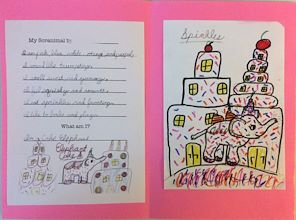 My Scranimal is
I am pink, blue, white, orange and purple.
I sound like trumpeting.
I smell sweet and yummy.
I feel squishy and smooth.
I eat sprinkles and frosting.
I like to bake and play.
What am I?
I'm a Cake Elephant
Elephant
Cake
Sprinkles